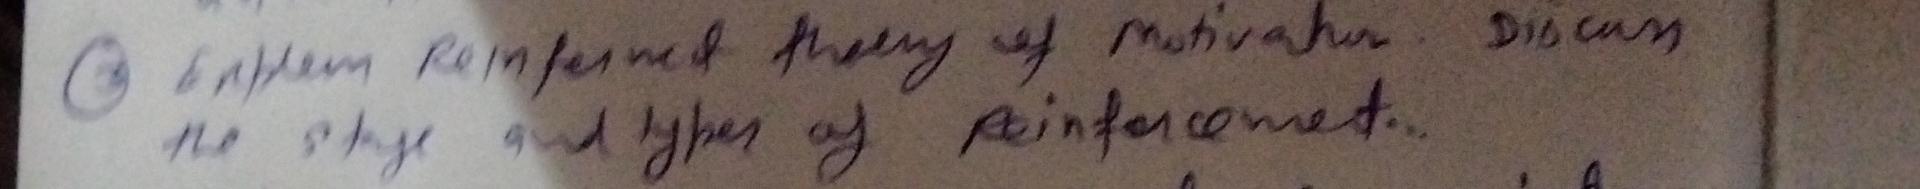 ③ Explain Reinforned theory of Motivation. Discuss
the stage and types of Reinforcemet..